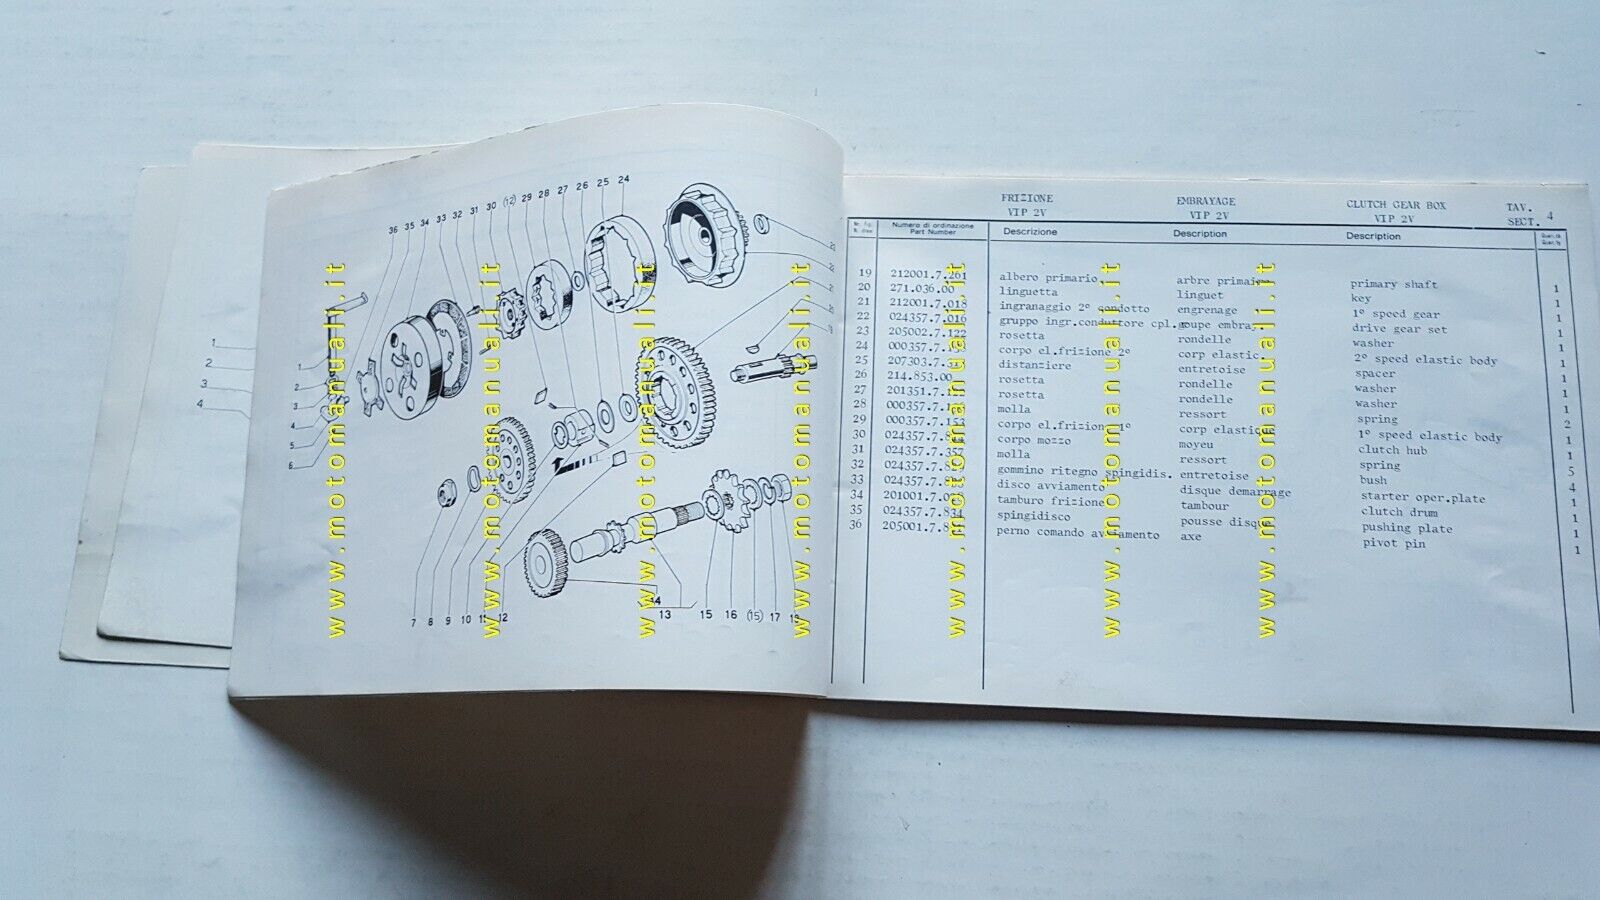 36 35 34 33 32 31 30 (12) 29 28 27 26 25 24
1
2
3
4
1
2
3
4
5
6
7 8 9 10 11 12
14
13
15 16 (15) 17
FRIZIONE EMBRAYAGE CLUTCH GEAR BOX TAV. 4
VIP 2V VIP 2V VIP 2V SECT.
Numero di ordinazione
Part Number
Descrizione Description Description
19 212001.7.261 albero primario arbre primaire primary shaft 1
20 271.036.00 linguetta linguet key 1
21 212001.7.018 ingranaggio 2° condotto engrenage 1° speed gear 1
22 024357.7.016 gruppo ingr.conduttore cpl. embra. drive gear set 1
23 205002.7.122 rosetta rondelle washer 1
24 000357.7. corpo el.frizione 2° corp elastic 2° speed elastic body 1
25 207303.7. distanziere entretoise spacer 1
26 214.853.00 rosetta rondelle washer 1
27 201351.7. rosetta rondelle washer 1
28 000357.7. molla ressort spring 2
29 000357.7.153 corpo el.frizione 1° corp elastique 1° speed elastic body 1
30 024357.7. corpo mozzo moyeu clutch hub 1
31 024357.7.357 molla ressort spring 5
32 024357.7. gommino ritegno spingidis. entretoise bush 4
33 024357.7. disco avviamento disque demarrage starter oper.plate 1
34 201001.7. tamburo frizione tambour clutch drum 1
35 024357.7.834 spingidisco pousse disque pushing plate 1
36 205001.7. perno comando avviamento axe pivot pin 1
www.motomanuali.it
www.motomanuali.it
www.motomanuali.it
www.motomanuali.it
www.motomanuali.it
www.motomanuali.it
www.motomanuali.it